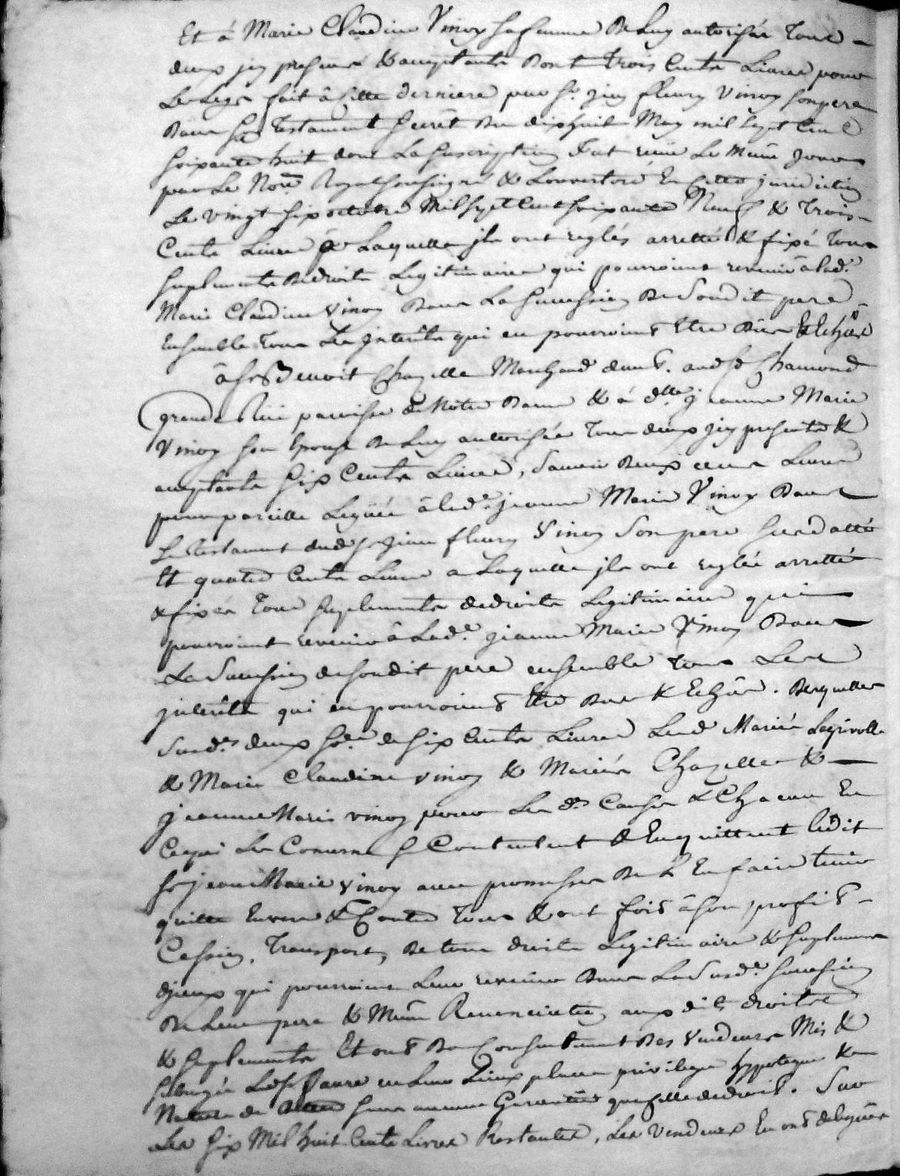 Et á Marie Claudine Vinoy sa femme De Luy autorisée Tous
deux icy presens & acceptants Dont Trois Cents Livres pour
Le Legs fait à cette derniere par Sr. jean fleury Vinoy son pere
Dans son Testament Secret Du dixhuit May mil sept Cent
soixante huit dont La suscription fut reçue Le même jour
par Le Nore. Royal soussigné & Louverture En cette juridiction
Le vingt six octobre Mil sept Cent soixante Neuf & Trois
Cents Livres à Laquelle ils ont reglés arretté & fixé Tous
suplements De droits Legitimaires qui pourroient revenir à lad.e
Marie Claudine Vinoy Dans La Succession De Sondit pere
Ensemble Tous Les interêts qui en pourroient Etre Dus & Echûs
à Sr. Benoit Chazelle Marchand de St. andh Chamond
grande Rüe paroisse de Notre Dame & á dlle. jeanne Marie
Vinoy Son Epouse De Luy autorisée Tous deux icy presents &
acceptants Six Cents Livres, Savoir Deux cens Livres
pour pareille Leguée à lad.e jeanne Marie Vinoy Dans
Le Testament dud. Sr. jean fleury Vinoy Son pere susdatté
Et quatre Cents Livres a Laquelle ils ont reglée arrettée
& fixée Tous suplements de droits Legitimaires qui
pourroient revenir à Lad.e jeanne Marie Vinoy Dans
La Succession de sondit pere ensemble Tous Les
interêts qui en pourroient Etre Dus & Echûs. Desquelles
Susd.es deux So.es de six Cents Livres Lesd. Mariés Lagrivolle
& Marie Claudine vinoy & Mariés Chazelle &
jeanne Marie vinoy pour Les d. Causes & Chacun En
Ce qui Les Concerne se Contentent & En quittent Ledit
Sr. jean Marie Vinoy avec promesse De L'En faire tenir
quitte Envers & Contre Tous & ont fait à son profit
Cession, Transport, De tous droits Legitimaires & suplements
d'jceux qui pourroient Leur revenir Dans La Susd.e Succession
De Leur pere & Même Renonciation aux dits droits
& suplements Et ont Du Consentement Des Vendeurs Mis &
Subrogé Led. Sr. Faure en Leur Lieu place privilege hypoteque &
Nature de sans aucune Garentie que celle de droit. Sur
Les six Mil huit Cents Livres Restantes, Les Vendeurs En ont delegués